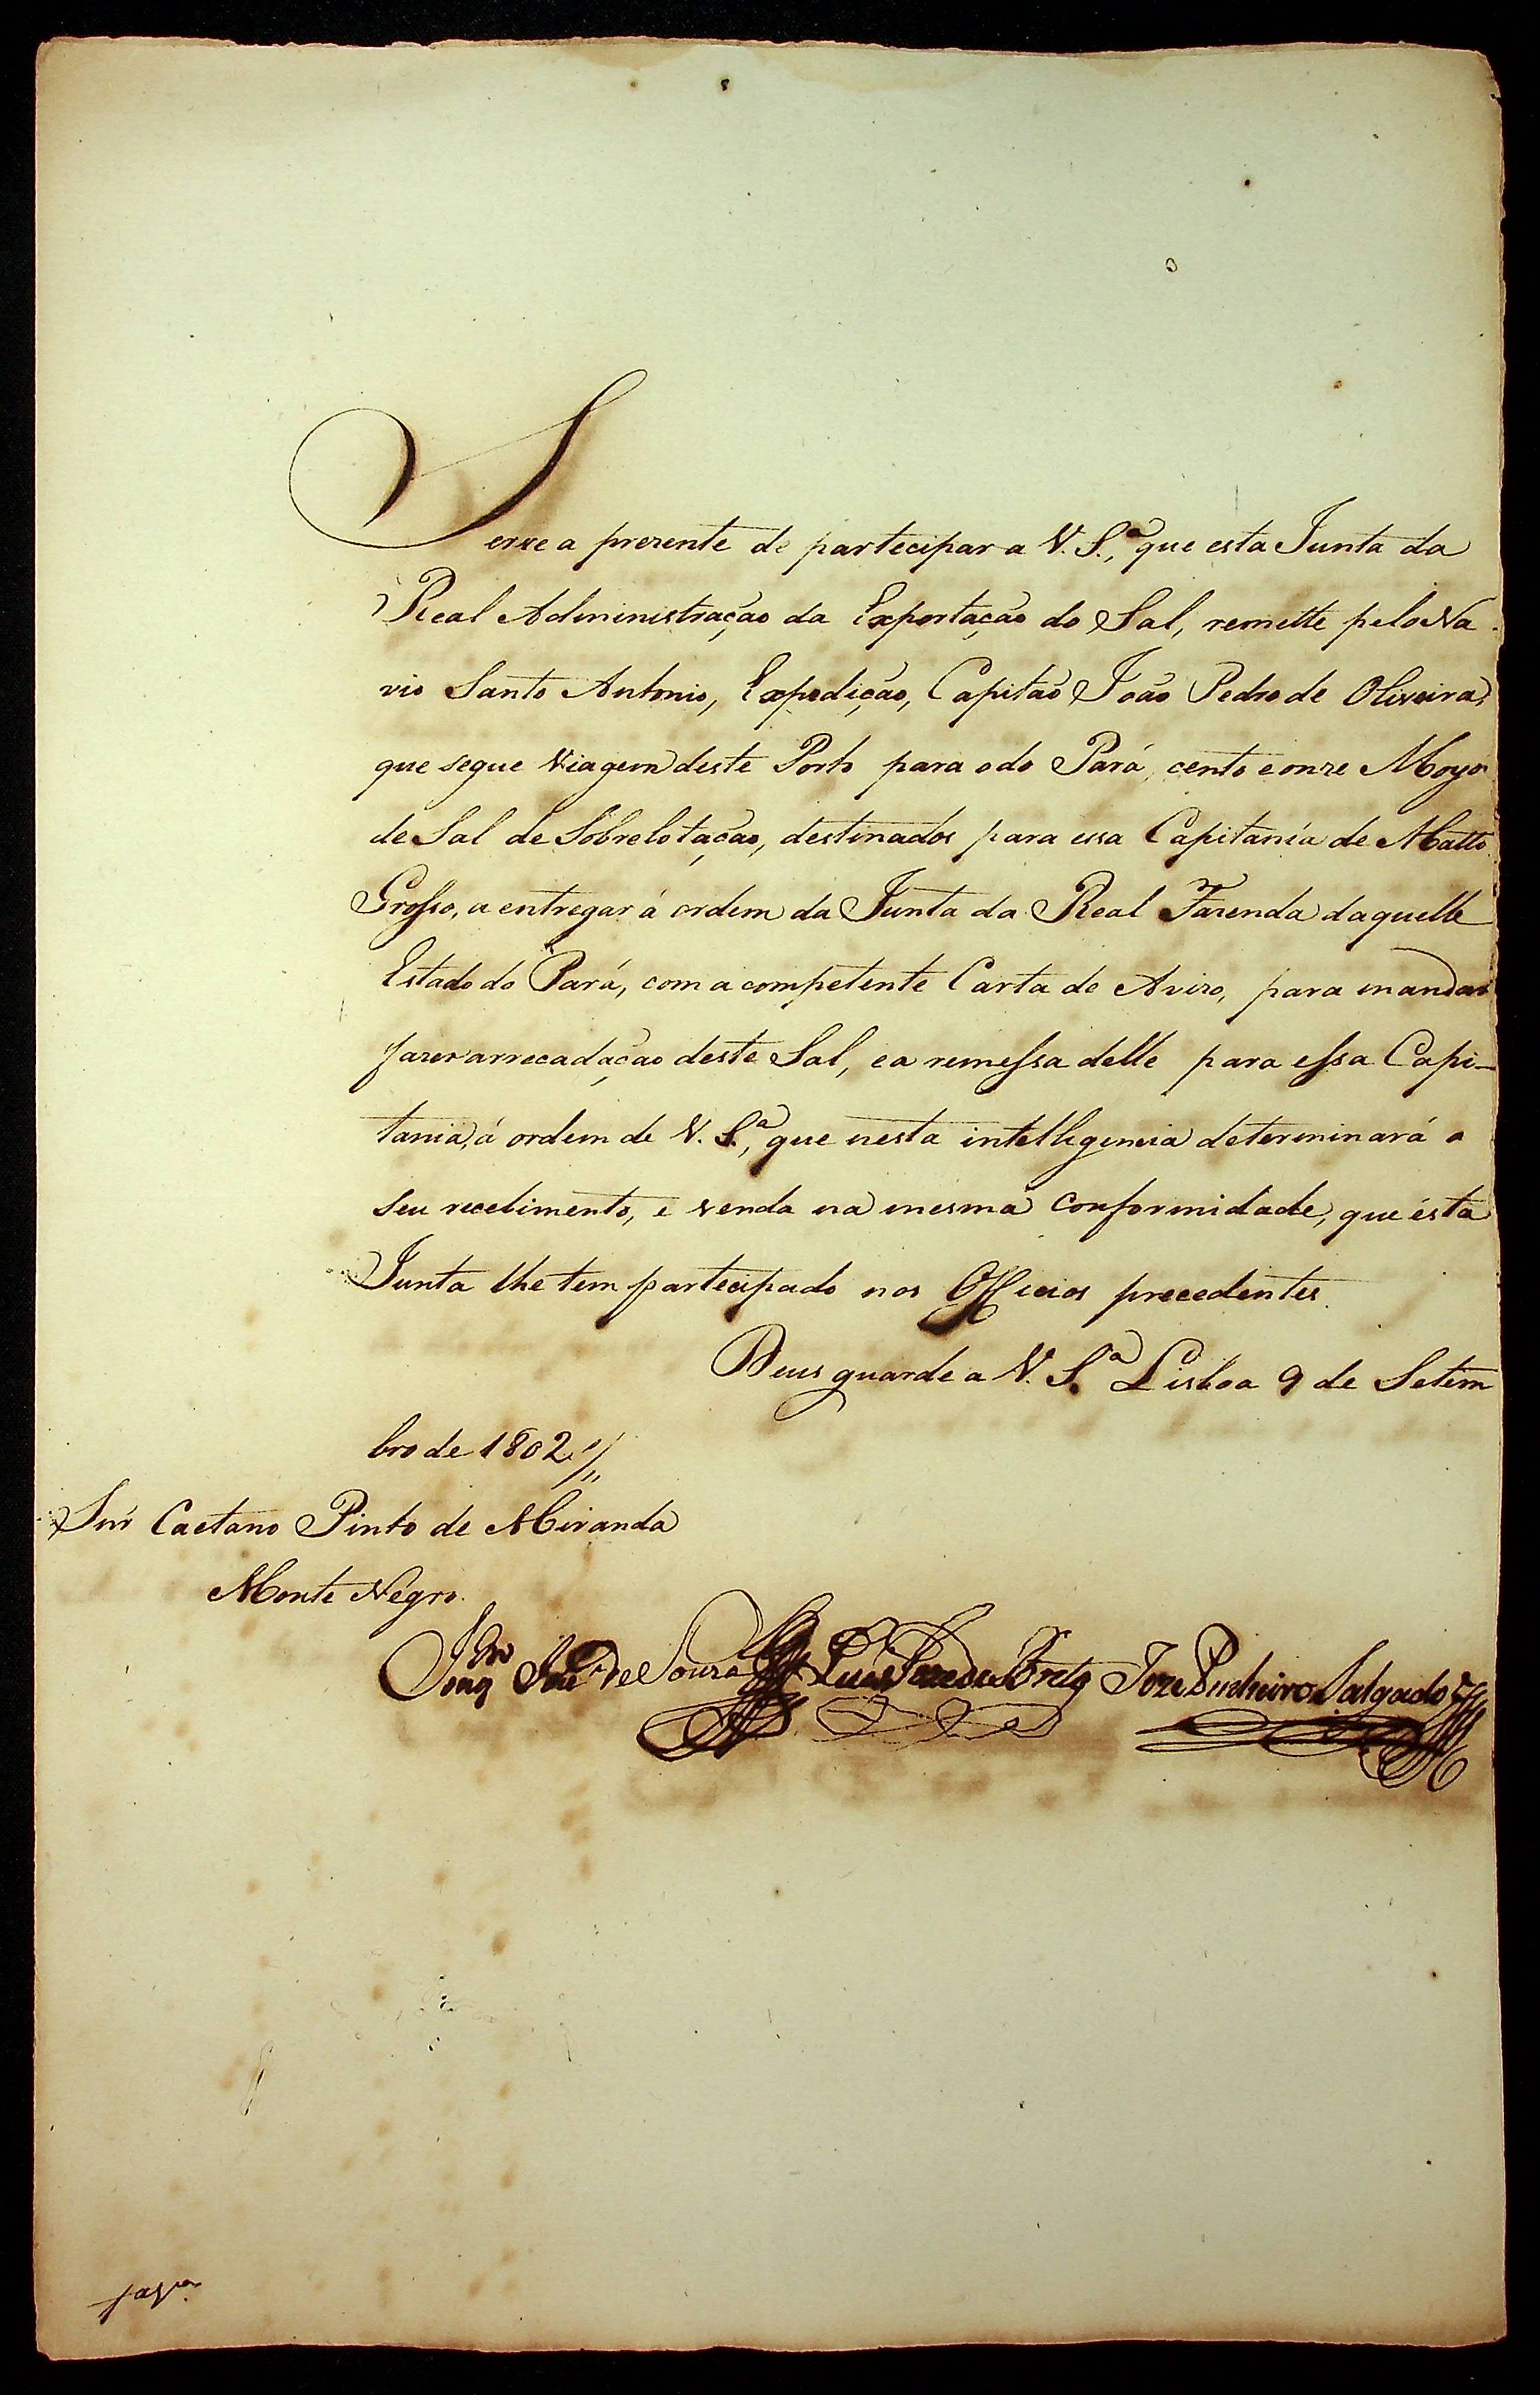 Serve a prezente de partecipar a V. S.ª, que esta Junta da
Real Administração da Exportação do Sal, remette pelo Na
vio Santo Antonio, Expedição, Capitão João Pedro de Oliveira,
que segue Viagem deste Porto para o do Pará, cento e onze Moyos
de Sal de Sobrelotação, destinados para essa Capitanía de Matto
Grosso, a entregar á ordem da Junta da Real Fazenda daquelle
Estado do Pará, com a competente Carta de Avizo, para mandar
fazer arrecadação deste Sal, e a remessa delle para essa Capi-
tania, á ordem de V. S.ª, que nesta intelligencia determinará o
seu recebimento, e venda na mesma conformidade, que ésta
Junta lhe tem partecipado nos Officios precedentes.
Deus guarde a V. S.ª Lisboa 9 de Setem
bro de 1802
Snr Caetano Pinto de Miranda
Monte Negro.
de Souza Luis Joze de Brito Joze Pinheiro Salgado